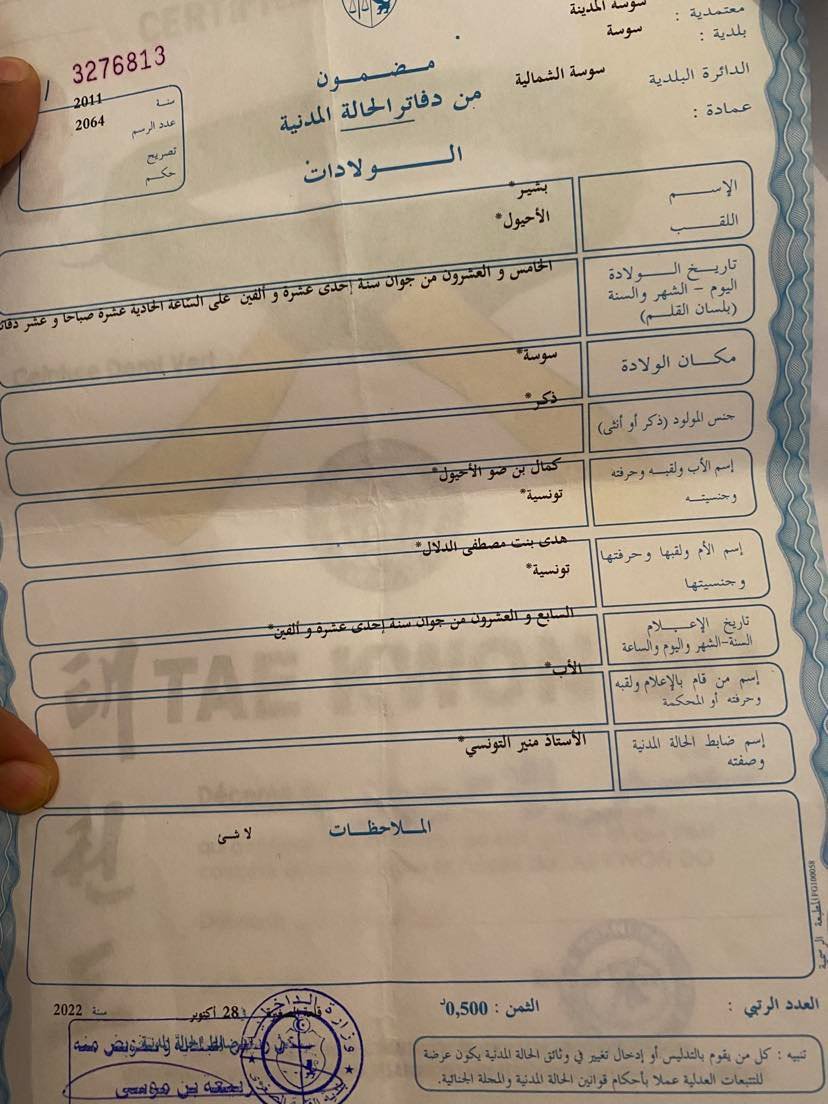 معتمدية : سوسة المدينة
بلدية : سوسة
الدائرة البلدية سوسة الشمالية
عمادة :
3276813
سنة 2011
عدد الرسم 2064
تصريح
حكم
مضمون
من دفاتر الحالة المدنية
الولادات
الإسم بشير*
اللقب الأحيول*
تاريخ الولادة
اليوم - الشهر والسنة
(بلسان القلم)
الخامس و العشرون من جوان سنة إحدى عشرة و ألفين على الساعة الحادية عشرة صباحا و عشر دقائق
مكان الولادة سوسة*
جنس المولود (ذكر أو أنثى) ذكر*
إسم الأب ولقبه وحرفته
وجنسيته
كمال بن ضو الأحيول*
تونسية*
إسم الأم ولقبها وحرفتها
وجنسيتها
هدى بنت مصطفى الدلال*
تونسية*
تاريخ الإعلام
السنة-الشهر واليوم والساعة
السابع و العشرون من جوان سنة إحدى عشرة و ألفين*
إسم من قام بالإعلام ولقبه
وحرفته أو المحكمة
الأب*
إسم ضابط الحالة المدنية
وصفته
الأستاذ منير التونسي*
الملاحظات
لا شئ
المطبعة الرسمية PG100058
العدد الرتبي :
الثمن : 0,500د
28 أكتوبر سنة 2022
تنبيه : كل من يقوم بالتدليس أو إدخال تغيير في وثائق الحالة المدنية يكون عرضة
للتتبعات العدلية عملا بأحكام قوانين الحالة المدنية والمجلة الجنائية.
وزارة الداخلية
TAE KWON